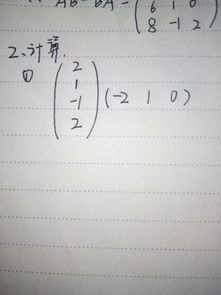 AB-BA=(6 1 0
8 -1 2)
2、计算.
① (2
1
-1
2)(-2 1 0)